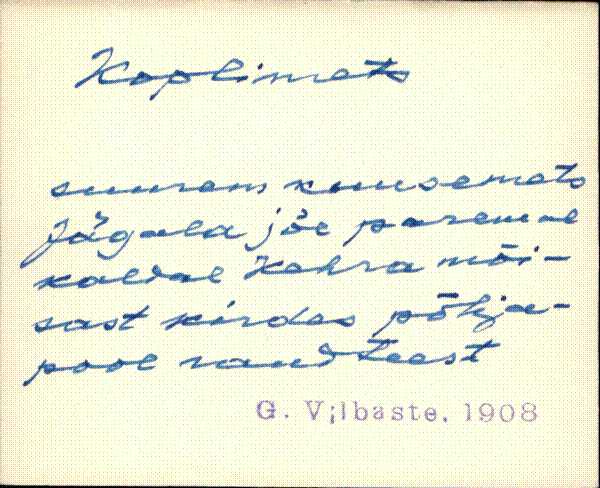 Koplimets
suurem kuusemets
Jägala jõe paremal
kaldal Kehra mõi-
sast kirdes põhja-
pool raudteest
G. Vilbaste, 1908